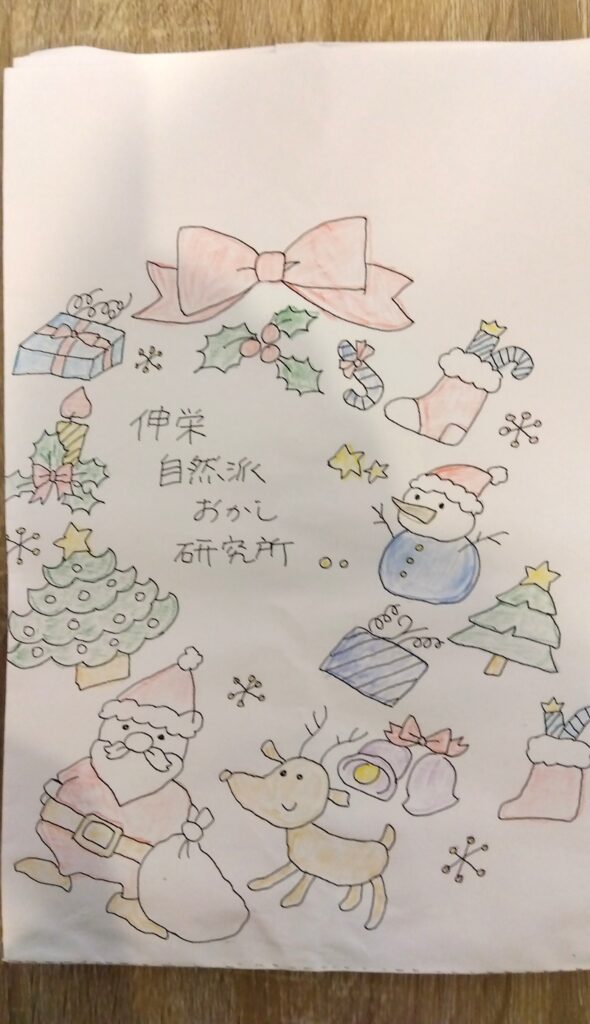 伸栄
自然派
おかし
研究所